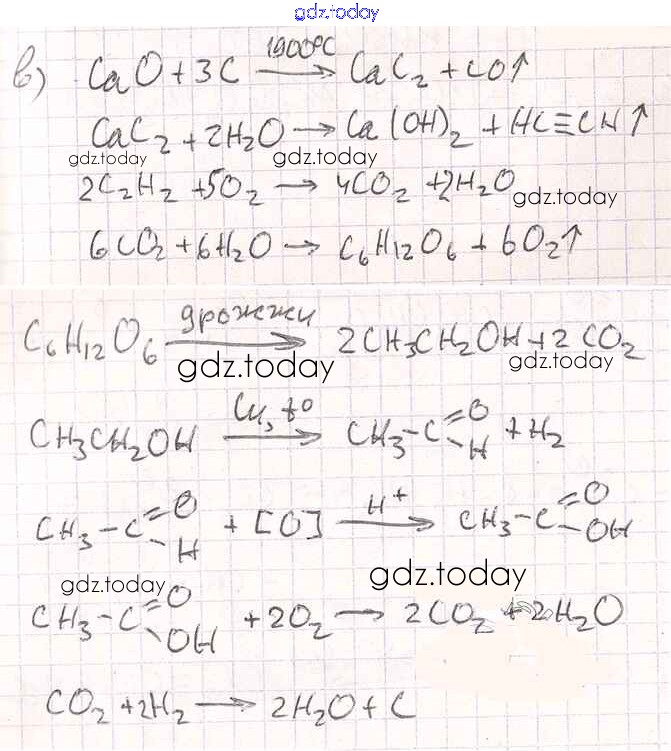 gdz.today
в) CaO + 3C 1900°C → CaC₂ + CO↑
CaC₂ + 2H₂O → Ca(OH)₂ + HC≡CH↑
gdz.today gdz.today
2C₂H₂ + 5O₂ → 4CO₂ + 2H₂O
gdz.today
6CO₂ + 6H₂O → C₆H₁₂O₆ + 6O₂↑
C₆H₁₂O₆ дрожжи → 2CH₃CH₂OH + 2CO₂
gdz.today gdz.today
CH₃CH₂OH Cu, t° → CH₃-C=O -H + H₂
CH₃-C=O -H + [O] H⁺ → CH₃-C=O -OH
gdz.today gdz.today
CH₃-C=O -OH + 2O₂ → 2CO₂ + 2H₂O
CO₂ + 2H₂ → 2H₂O + C